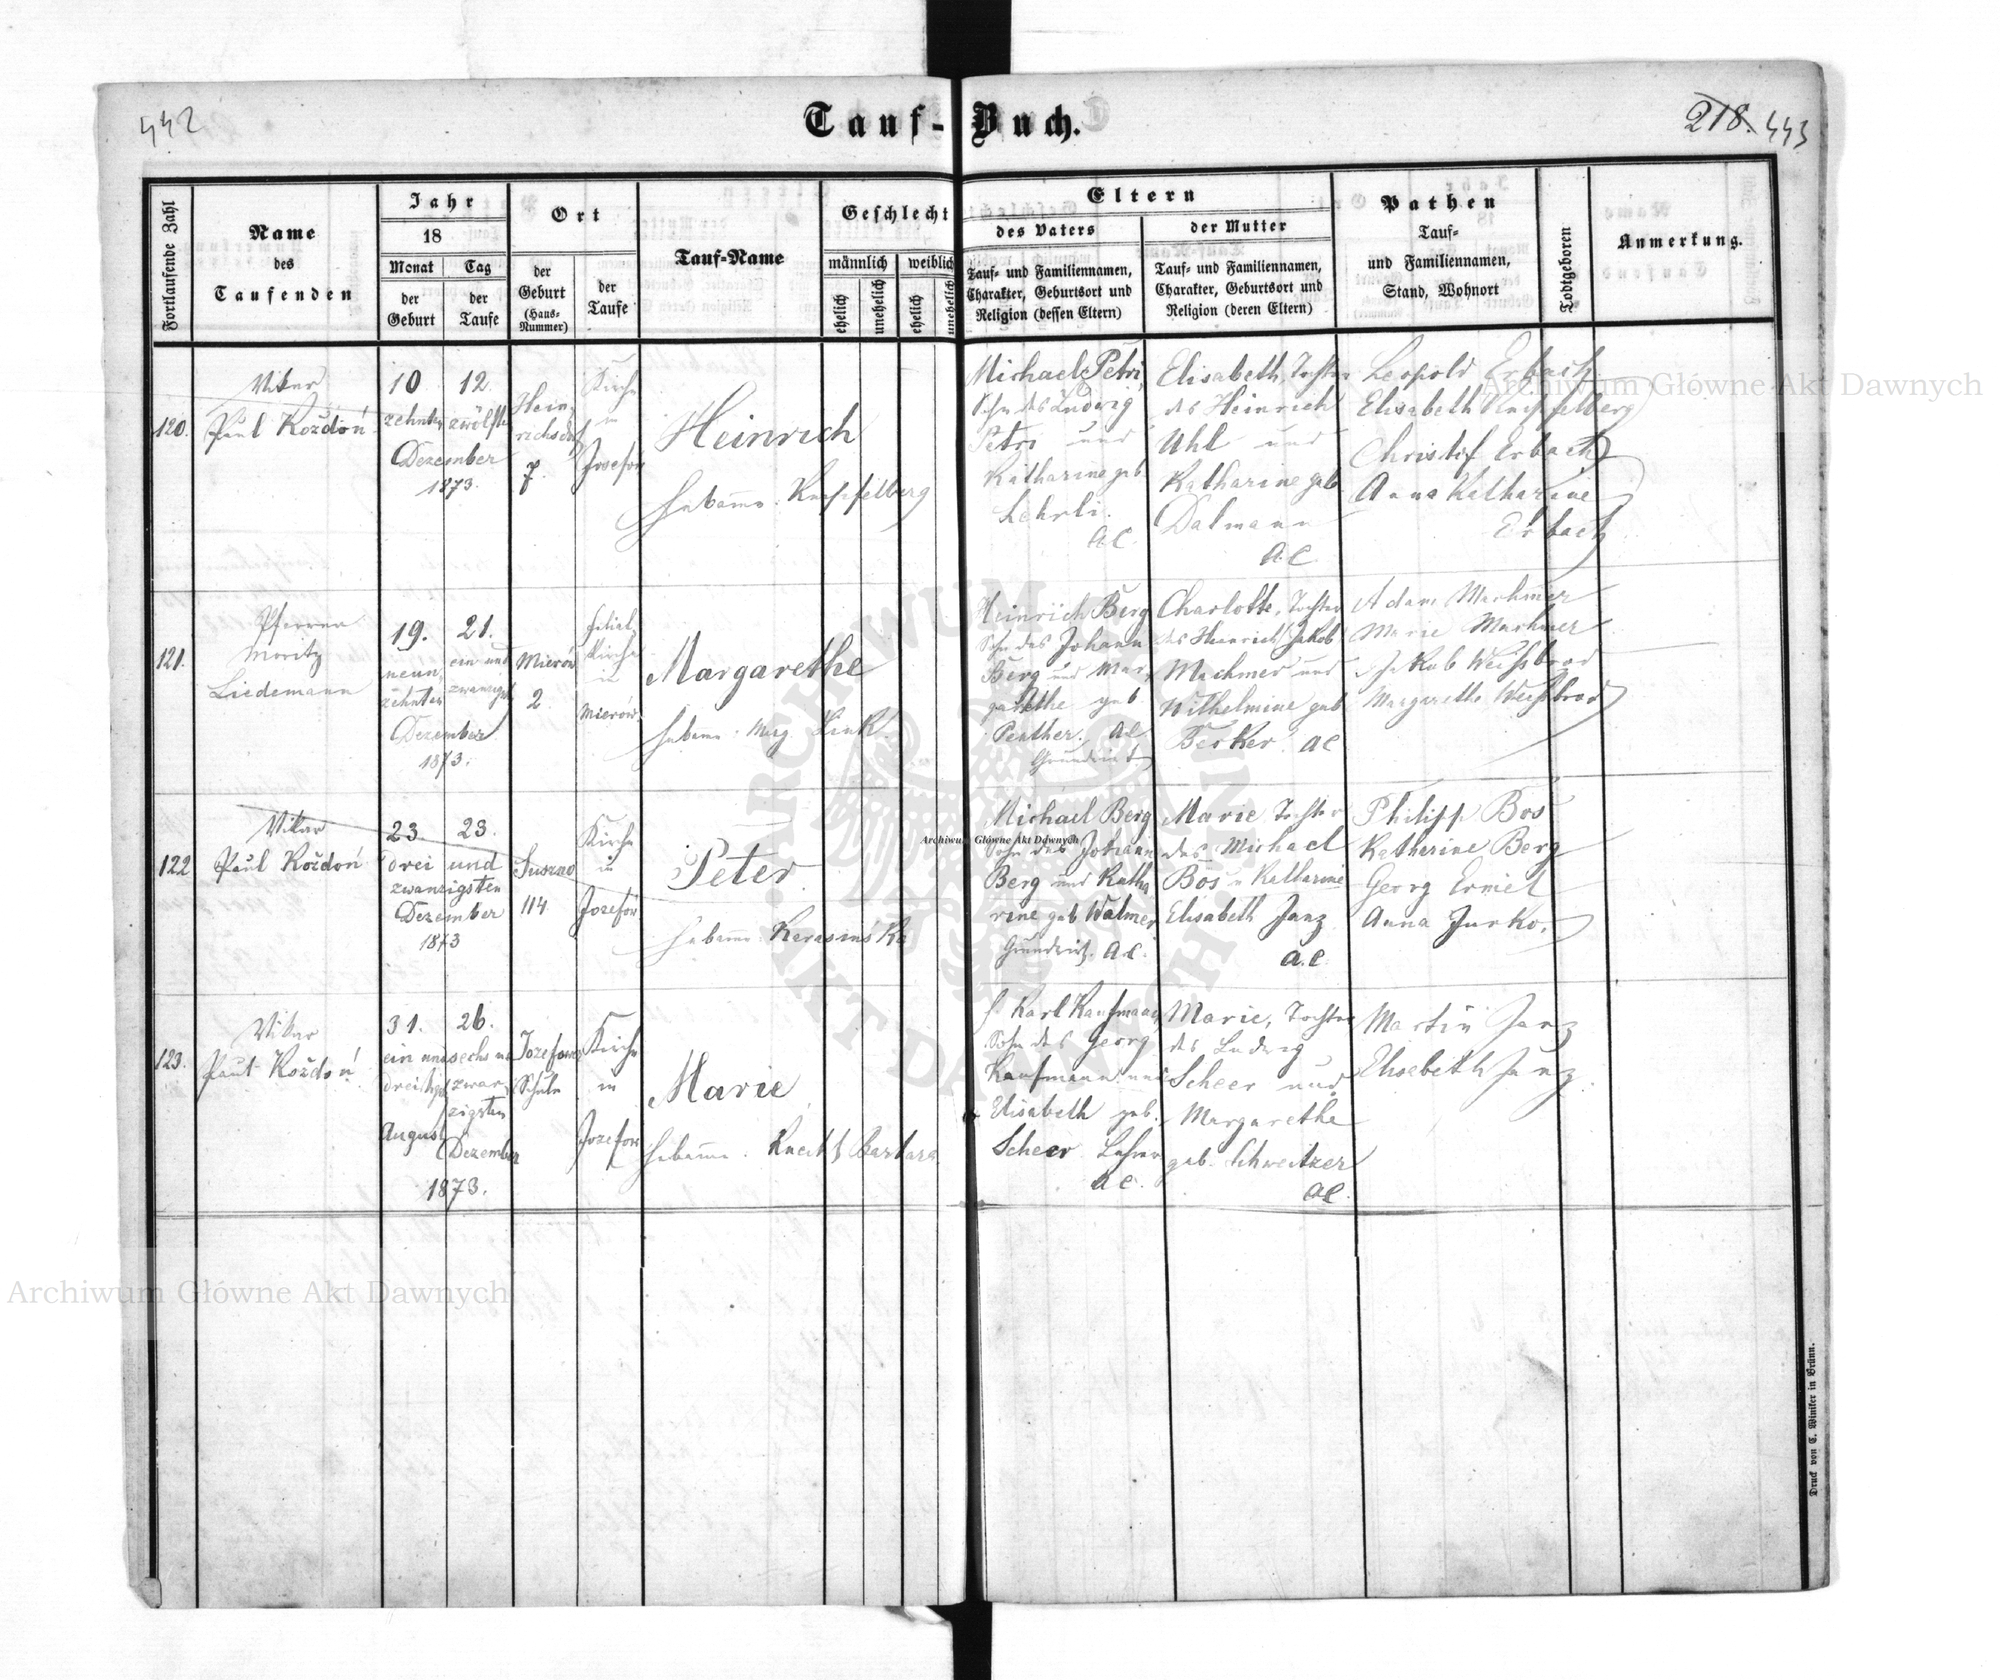 442
Tauf-Buch.
218. 443
Fortlaufende Zahl
Name
des
Taufenden
Jahr
18
Monat
der
Geburt
Tag
der
Taufe
Ort
der
Geburt
(Haus-
Nummer)
der
Taufe
Tauf-Name
Geschlecht
männlich
weiblich
ehelich
unehelich
ehelich
unehelich
Eltern
des Vaters
Tauf- und Familiennamen,
Charakter, Geburtsort und
Religion (dessen Eltern)
der Mutter
Tauf- und Familiennamen,
Charakter, Geburtsort und
Religion (deren Eltern)
Pathen
Tauf-
und Familiennamen,
Stand, Wohnort
Todtgeboren
Anmerkung.
120.
Vikar
Paul Koždoń
10
zehnten
12.
zwölften
Dezember
1873.
Hein-
richsdorf
7.
Kirche
in
Josefow
Heinrich
Hebamme: Knipfelberg
Michael Petri,
Sohn des Ludwig
Petri und
Katharine geb
A.C.
Elisabeth, Tochter
des Heinrich
Uhl und
Katharine geb
Dalmann
A.C.
Leopold Erbach
Elisabeth Knipfelberg
Christof Erbach
Anna Katharine
Erbach
121.
Pfarrer
Moritz
Liedemann
19.
neun
zehnten
21.
ein und
zwanzigsten
Dezember
1873.
Mierow
2.
Filial
Kirche
in
Mierow
Margarethe
Hebamme: Marg. Link.
Heinrich Berg
Sohn des Johann
Berg und Mar
garethe geb
Penther. A.C.
Grundwirt
Charlotte, Tochter
des Heinrich Jakob
Machmer und
Wilhelmine geb
Becker. AC
Adam Machmer
Marie Machmer
Jakob Weißbrod
Margarethe Weißbrod
122
Vikar
Paul Koždoń
23.
drei und
23.
zwanzigsten
Dezember
1873
Suszno
114.
Kirche
in
Jozefow
Peter
Hebamme: Karasinska
Michael Berg
Sohn des Johann
Berg und Katha
rine geb Walmer
Grundwirt. A.C.
Marie Tochter
des Michael
Bos u Katharine
Elisabeth Janz
A.C.
Philipp Bos
Katherine Berg
Georg Ermel
Anna Jurko.
123.
Vikar
Paul Koždoń
31.
ein und
dreißigst
August
26.
sechs und
zwan
zigsten
Dezember
1873.
Jozefow
Schule
Kirche
in
Jozefow
Marie
Hebamme: Knecht Barbara
Karl Kaufmann
Sohn des Georg
Kaufmann und
Elisabeth geb.
Scheer Lehrer
A.C.
Marie, Tochter
des Ludwig
Scheer und
Margarethe
geb. Schweitzer
AC.
Martin Janz
Elisabeth Janz
Druck von C. Winiker in Brünn.
Archiwum Główne Akt Dawnych
Archiwum Główne Akt Dawnych
Archiwum Główne Akt Dawnych
ARCHIWUM GŁÓWNE
AKT DAWNYCH